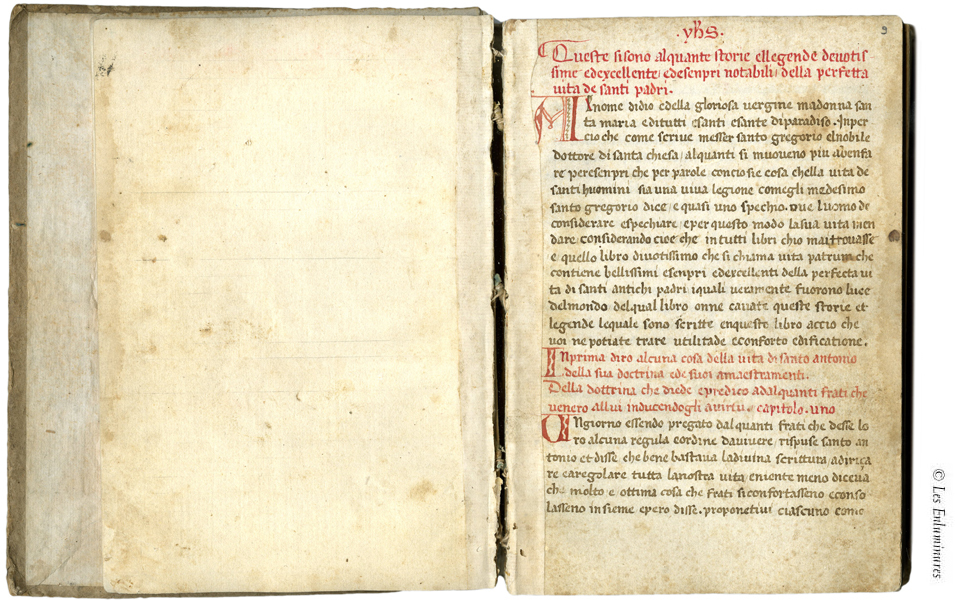 .yhS.
9
Queste sisono alquante storie ellegende deuotis
sime edexcellente edesenpri notabili della perfetta
uita de santi padri.
Al nome didio edella gloriosa uergine madonna san
ta maria editutti esanti esante diparadiso. Inper
cio che come scriue messer santo gregorio elnobile
dottore disanta chiesa alquanti si muoueno piu abenfa
re peresenpri che per parole conciosie cosa chella uita de
santi huomini sia una uiua legione comegli medesimo
santo gregorio dice e quasi uno spechio. oue luomo de
considerare espechiare eper questo modo lasua uita men
dare considerando cioe che in tutti libri chio mai trouasse
e quello libro diuotissimo che si chiama uita patrum che
contiene bellissimi esenpri edexcellenti della perfecta ui
ta di santi antichi padri iquali ueramente fuorono luce
delmondo delqual libro onne cauate queste storie et
legende lequale sono scritte enquesto libro accio che
uoi ne potiate trare utilitade econforto edificatione.
Inprima diro alcuna cosa della uita disanto antonio
della sua doctrina ede suoi amaestramenti.
Della dottrina che diede epredico adalquanti frati che
uenero allui inducendogli auirtu. capitolo. uno
Ongiorno essendo pregato dalquanti frati che desse lo
ro alcuna regula eordine dauiuere rispuse santo an
tonio et disse che bene bastaua ladiuina scrittura adiriça
re earegolare tutta lanostra uita eniente meno diceua
che molto e ottima cosa che frati siconfortasseno econso
lasseno insieme epero disse. proponetiui ciascuno como
© Les Enluminures